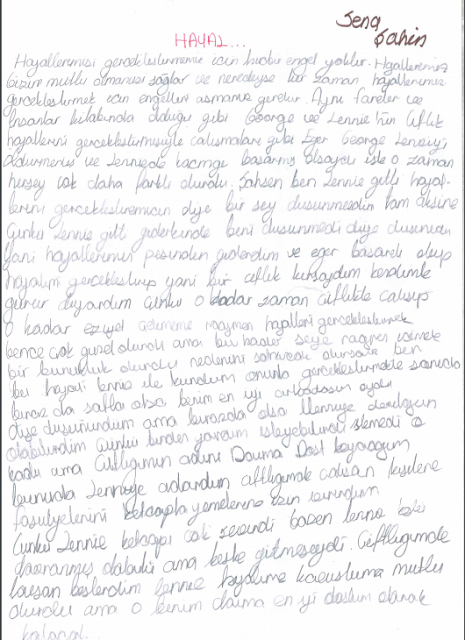 Sena
Şahin
HAYAL...
Hayallerimizi gerçekleştirmemize için hiçbir engel yoktur. Hayallerimiz
bizim mutlu olmamızı sağlar ve neredeyse her zaman hayallerimizi
gerçekleştirmek için engelleri aşmamız gerekir. Aynı fareler ve
insanlar kitabında olduğu gibi George ve Lennie'nin çiftlik
hayallerini gerçekleştirmesiyle çalışmaları gibi Eğer George Lennie'yi
öldürmemiş ve Lennie'de kaçmayı başarmış olsaydı işte o zaman
herşey çok daha farklı olurdu. Şahsen ben Lennie gitti hayal-
lerini gerçekleştiremicem diye bir şey düşünmezdim tam aksine
Çünkü Lennie gitti giderkende beni düşünmedi diye düşünür
yani hayallerimin peşinden giderdim ve eğer başarılı olup
hayalimi gerçekleştirip yani bir çiftlik kursaydım kendimle
gurur duyardım Çünkü o kadar zaman çiftlikte çalışıp
o kadar eziyet çekmeme rağmen hayalleri gerçekleştirmek
bence çok güzel olurdu ama bu kadar şeye rağmen içimde
bir burukluk olurdu nedenini soracak olursanız ben
bu hayali lennie ile kurdum onunla gerçekleştirmekte
biraz da saftı olsa benim en iyi arkadaşım oydu
diye düşünürdüm ama birazda olsa
olabilirdim Çünkü benden yardım isteyebilirdi istemedi o
kadar ama Çiftliğimin adını Daima Dost koyacağım
bununla Lennie'ye adardım çiftliğimde çalışan kişilere
fasulyelerini ketçapla yemelerine izin verirdim
Çünkü Lennie ketçapı çok severdi bazen lennie
davranmış olabilir ama keşke gitmeseydi. Çiftliğimde
tavşan beslerdim lennie hayaline kavuştuma mutlu
olurdu ama o benim daima en iyi dostum olarak
kalacak...